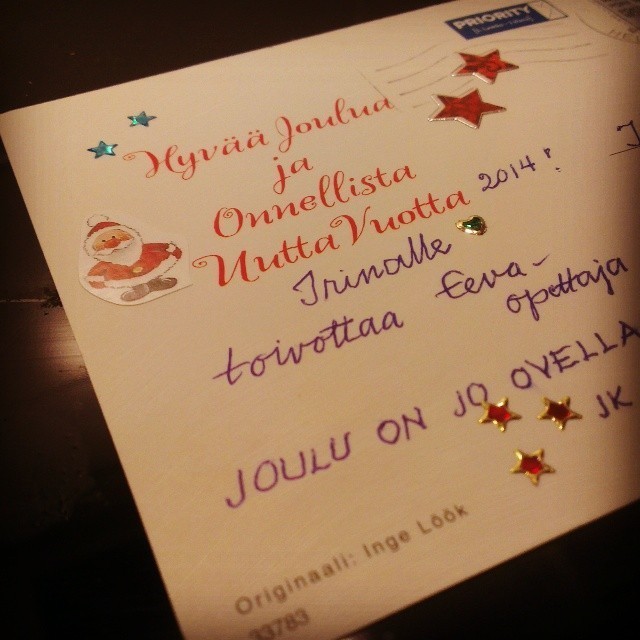 PRIORITY
Hyvää Joulua
ja
Onnellista
Uutta Vuotta 2014!
Irinalle
toivottaa Eeva-
opettaja
JOULU ON JO OVELLA
JK
Originaali: Inge Löök
33783